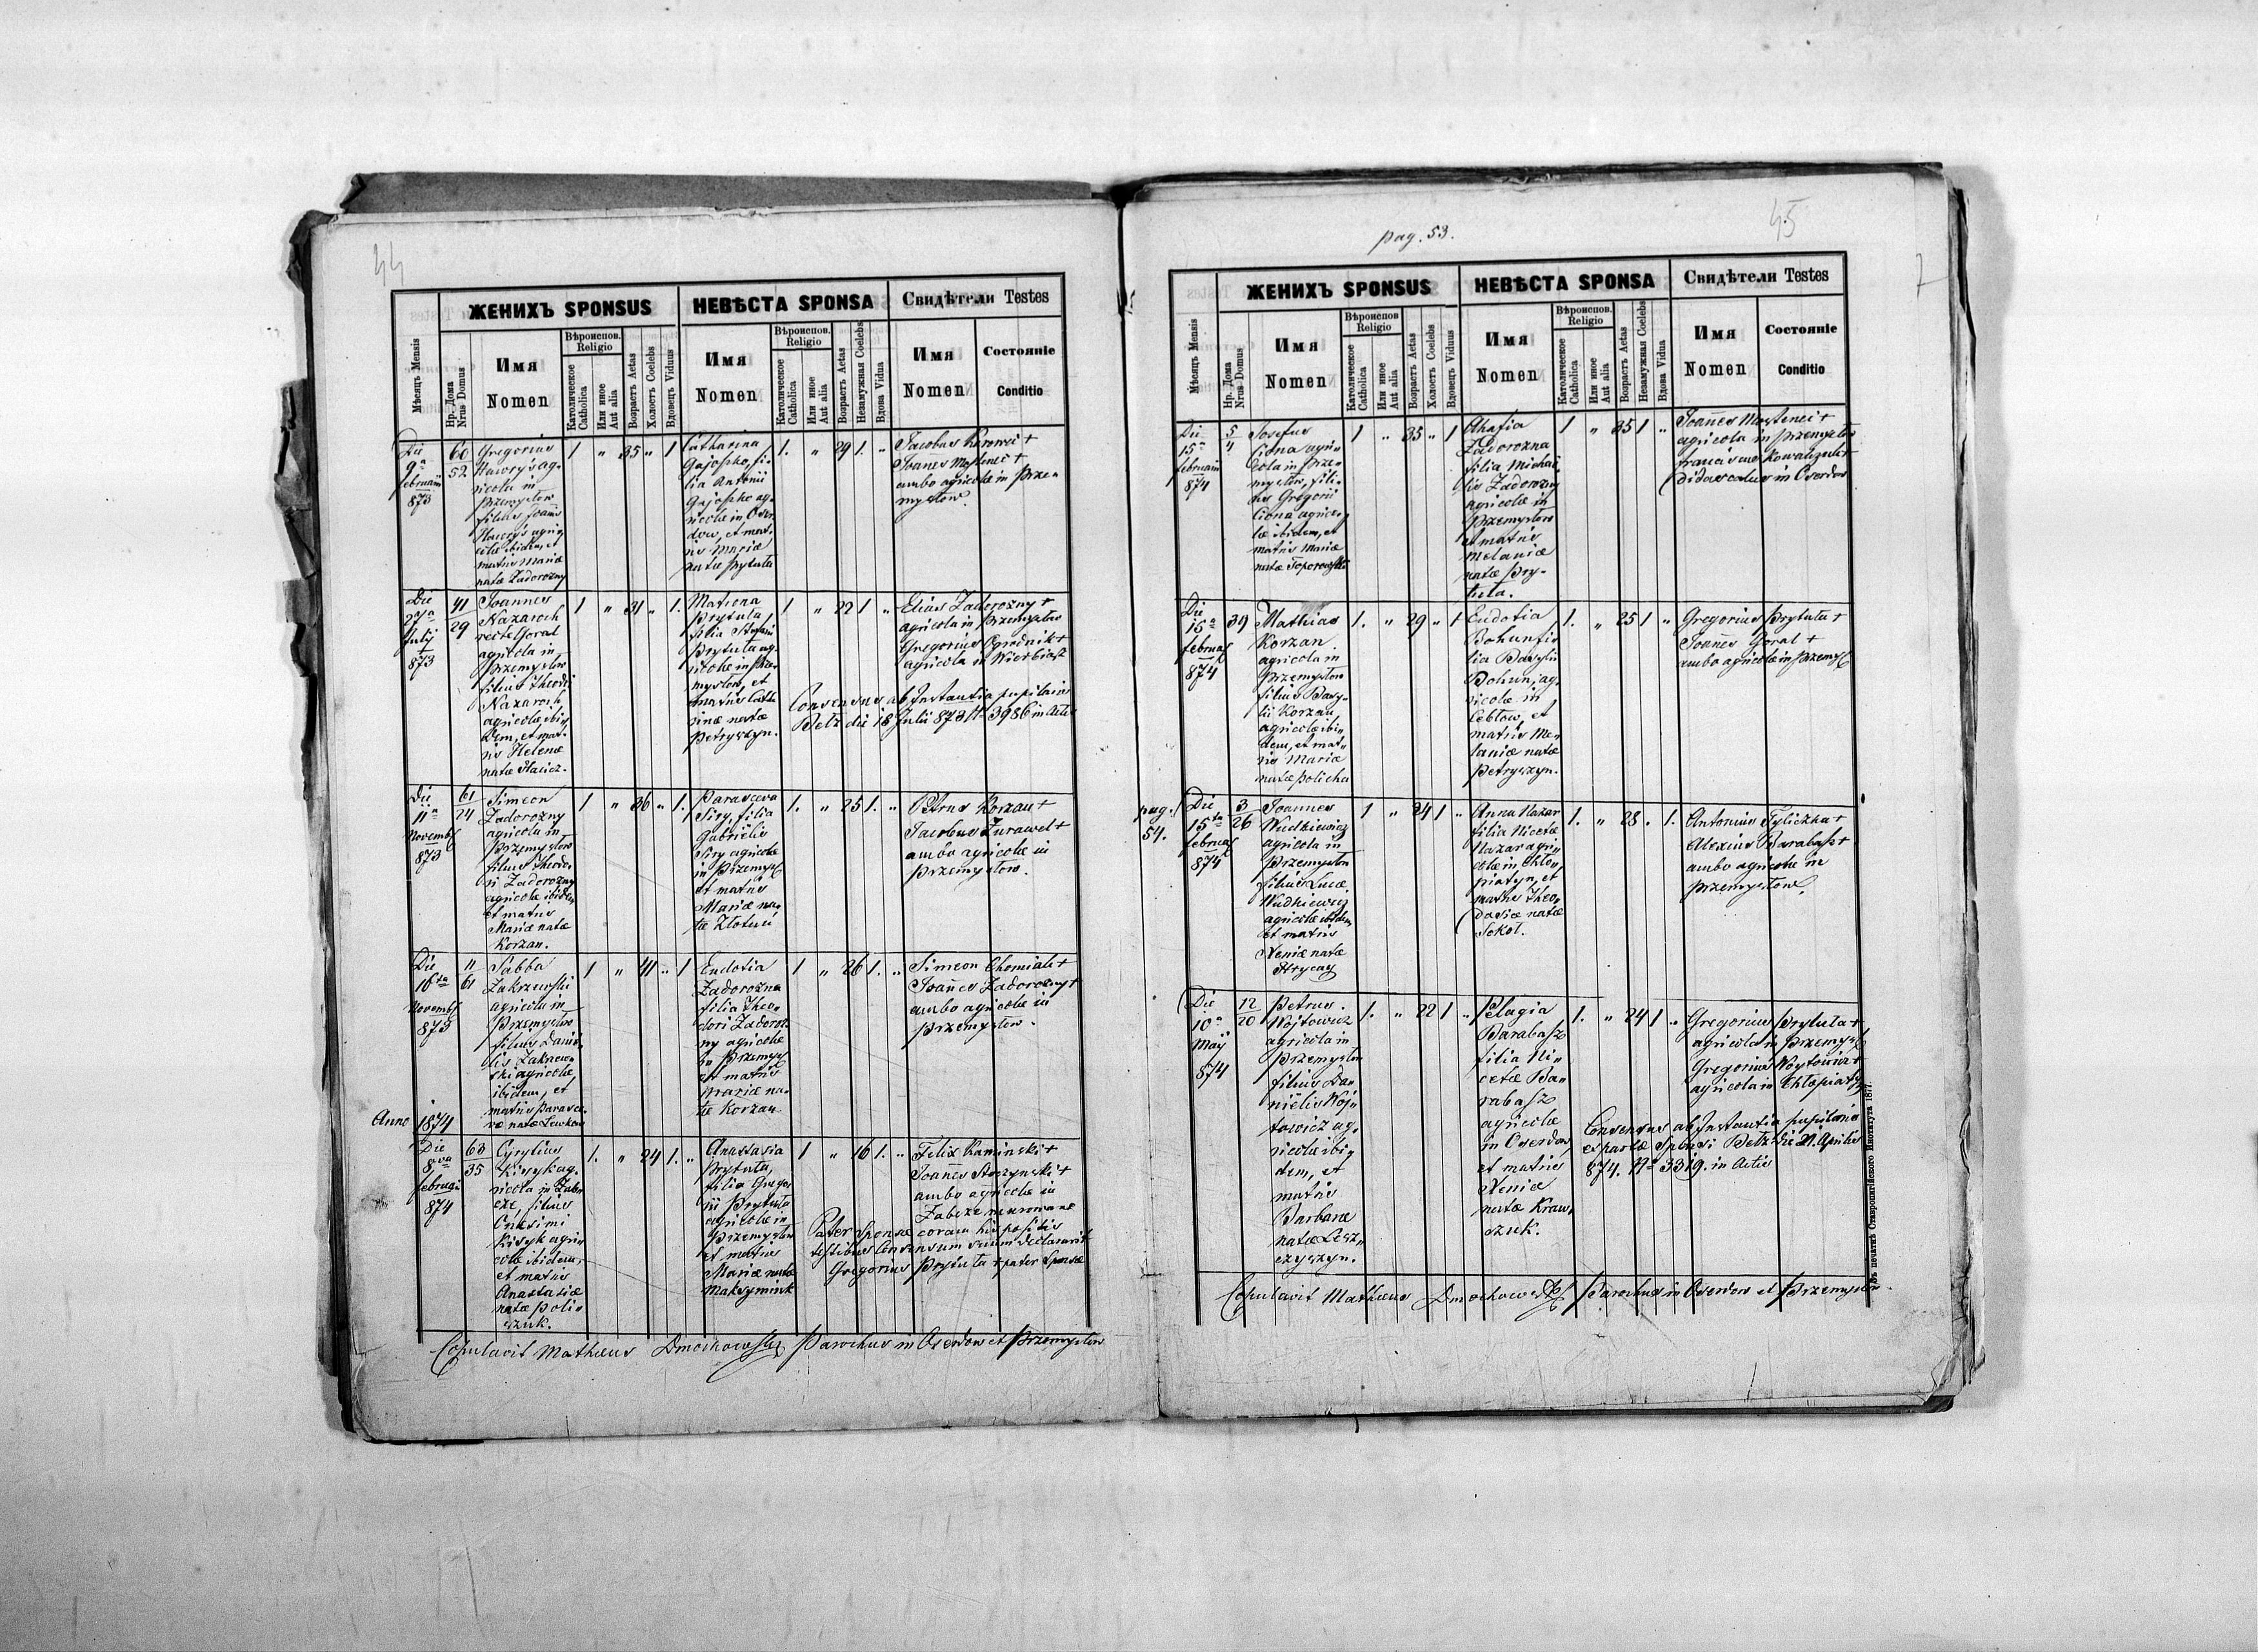 44
ЖЕНИХЪ SPONSUS
НЕВѢСТА SPONSA
Свидѣтели Testes
Мѣсяцъ Mensis
Нр. Дома Nrus Domus
Имя Nomen
Вѣроиспов. Religio
Католическое Catholica
Или иное Aut alia
Возрастъ Aetas
Холостъ Coelebs
Вдовецъ Viduus
Имя Nomen
Вѣроиспов. Religio
Католическое Catholica
Или иное Aut alia
Возрастъ Aetas
Незамужная Coelebs
Вдова Vidua
Имя Nomen
Состояніе Conditio
Die
9a
februarii
873
60
52
Gregorius
Nawryś ag-
ricola in
Przemysłow
filius Joannis
Nawryś agri-
colæ ibidem, et
matris Mariæ
natæ Zadorozny
1 " 35 " 1
Catharina
Gajosрko, fi-
lia Antonii
Gajosрko ag-
ricolæ in Oser-
dow, et mat-
ris Mariæ
natæ Prytuła
1. " 29 1. "
Jacobus +
Joannes Mostenci +
ambo agricolæ in Prze-
mysłow.
Die
27a
Julij
873
41
29
Joannes
Nazaroch
recte Goral
agricola in
Przemysłow
filius Theodori
Nazaroch
agricolæ ibi-
dem, et mat-
ris Helenæ
natæ
1 " 31 " 1.
Matrona
Prytuła,
filia Stefani
Prytuła ag-
ricolæ in Prze-
mysłow, et
matris Catha-
rinæ natæ
Petryszyn.
1 " 22 1 "
Elias Zadorozny +
agricola in Przemysłow
Gregorius Ogrodnik +
agricola in Wierbiąż
Consensus ab Instantia pupilaris
Bełz die 18 Julii 873 Nr 3986 in Actis
Die
11a
Novemb
873
61
24
Simeon
Zadorozny
agricola in
Przemysłow
filius Theodo-
ri Zadorozny
agricolæ ibidem
et matris
Mariæ natæ
Korzan.
1 " 36 " 1.
Parasceva
Siry, filia
Gabrielis
Siry agricolæ
in Przemysł
et matris
Mariæ na-
tæ
1. " 25 1. "
Petrus Korzan +
Jacobus Żurawel +
ambo agricolæ in
Przemysłow.
Die
16ta
Novemb
873
11
61
Sabba
Zakrzewski
agricola in
Przemysłow
filius Danie-
lis Zakrzew-
ski agricolæ
ibidem, et
matris Parasce-
væ natæ Lewkow
1 " 41 " 1
Eudotia
Zadorozna
filia Theo-
dori Zadoroz-
ny agricolæ
in Przemysł
et matris
Mariæ na-
tæ Korzan
1 " 26 1. "
Simeon Chomiak +
Joannes Zadorozny +
ambo agricolæ in
Przemysłow.
Anno 1874
Die
8va
februar
874
63
35
Cyrylius
Kisyk ag-
ricola in Zab-
cze, filius
Onesimi
Kisyk agri-
colæ ibidem,
et matris
Anastasiæ
natæ Poli-
szuk.
1. " 24 1. "
Anastasia
Prytuła,
filia Grego-
rii Prytuła
agricolæ in
Przemysłow
et matris
Mariæ natæ
Maksymink
1 " 16 1. "
Felix Kaminski +
Joannes +
ambo agricolæ in
Zabcze murowane
Pater Sponsæ coram his positis
testibus Consensum suum declaravit
Gregorius Prytuła + pater Sponsæ
Copulavit Mathæus Dmochowski Parochus in Oserdow et Przemysłow
45
pag. 53.
ЖЕНИХЪ SPONSUS
НЕВѢСТА SPONSA
Свидѣтели Testes
Мѣсяцъ Mensis
Нр. Дома Nrus Domus
Имя Nomen
Вѣроиспов. Religio
Католическое Catholica
Или иное Aut alia
Возрастъ Aetas
Холостъ Coelebs
Вдовецъ Viduus
Имя Nomen
Вѣроиспов. Religio
Католическое Catholica
Или иное Aut alia
Возрастъ Aetas
Незамужная Coelebs
Вдова Vidua
Имя Nomen
Состояніе Conditio
Die
15a
februarii
874
5
4
Josefus
Ciona agri-
cola in Prze-
mysłow, fili-
us Gregorii
Ciona agrico-
læ ibidem, et
matris Mariæ
natæ Toporowski
1 " 35 " 1
Ahafia
Zadorozna
filia Michai-
lis Zadorozny
agricolæ in
Przemysłow
et matris
Melaniæ
natæ Pry-
tuła.
1 " 35 1 "
Joannes Mostenci +
agricola in Przemysłow
Franciscus Kowalczuk +
Didascalus in Oserdow
Die
15a
februar
874
39
Mathias
Korzan
agricola in
Przemysłow
filius Basy-
lii Korzan
agricolæ ibi-
dem, et mat-
ris Mariæ
natæ Policha
1. " 29 " 1
Eudotia
Bohun fi-
lia Basylii
Bohun, ag-
ricolæ in
Cebłow, et
matris Me-
laniæ natæ
Petryszyn.
1. " 25 1 "
Gregorius Prytuła +
Joannes Goral +
ambo agricolæ in Przemysł
pag.
54.
Die
15ta
februar
874
3
26
Joannes
Wudkiewicz
agricola in
Przemysłow
filius Lucæ
Wudkiewicz
agricolæ ibidem
et matris
Xeniæ natæ
Hrycay
1 " 24 1 "
Anna Nazar
filia Nicetæ
Nazar agri-
colæ in Chło-
piatyn, et
matris Theo-
dosiæ natæ
Sokoł.
1. " 28. " 1.
Antonius Tyliczka +
Alexius Barabasz +
ambo agricolæ in
Przemysłow.
Die
10a
Maij
874
12
20
Petrus
Wojtowicz
agricola in
Przemysłow
filius Da-
nielis Woj-
towicz ag-
ricolæ ibi-
dem, et
matris
Barbaræ
natæ Lesz-
czyszyn.
1. " 22 1 "
Pelagia
Barabasz
filia Ni-
cetæ Ba-
rabasz
agricolæ
in Oserdow,
et matris
Xeniæ
natæ Kraw-
szuk.
1. " 24 1 "
Gregorius Prytuła +
agricola in Przemysł
Gregorius Woytowicz +
agricola in Chłopiatyn
Consensus ab Instantia pupilaris
ex parte Sponsi Bełz die 21. Aprilis
874. No 3319. in Actis
Copulavit Mathæus Dmochowski Parochus in Oserdow et Przemysłow
Въ печатнѣ Ставропигійского Института 1877.